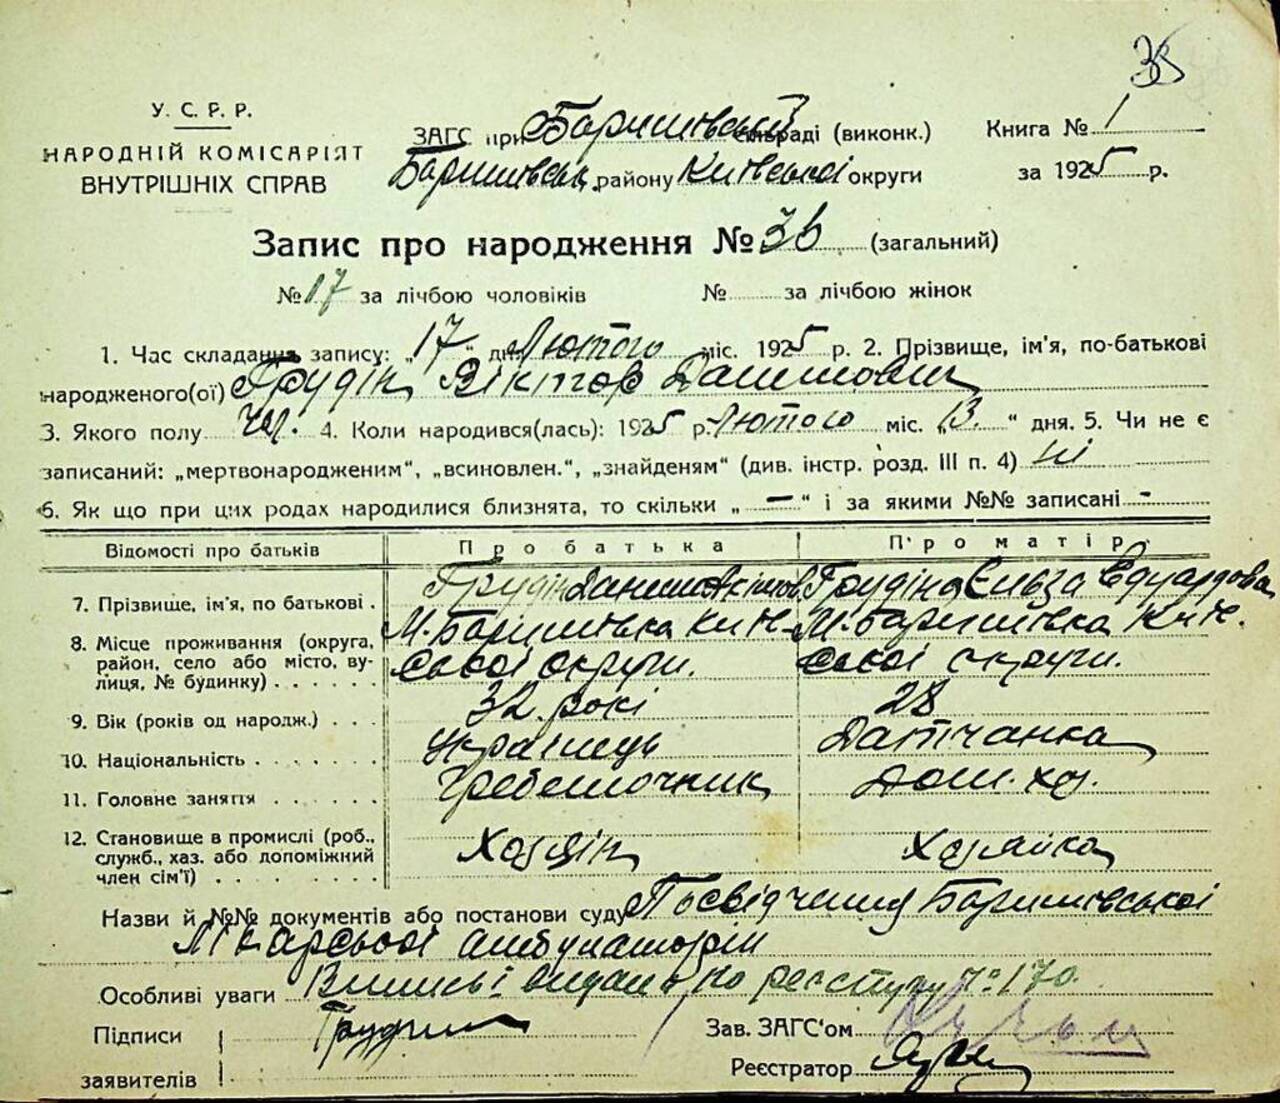 35
У. С. Р. Р.
НАРОДНІЙ КОМІСАРІЯТ
ВНУТРІШНІХ СПРАВ
ЗАГС при Баришівській сільраді (виконк.)
Книга № 1
Баришівськ. району Київської округи
за 1925 р.
Запис про народження № 36 (загальний)
№ 17 за лічбою чоловіків № за лічбою жінок
1. Час складання запису: „17“ дня Лютого міс. 1925 р. 2. Прізвище, ім'я, по-батькові
народженого(ої) Грудін Віктор Данилович
3. Якого полу чол. 4. Коли народився(лась): 1925 р. Лютого міс. „13.“ дня. 5. Чи не є
записаний: „мертвонародженим“, „всиновлен.“, „знайденям“ (див. інстр. розд. III п. 4) ні
6. Як що при цих родах народилися близнята, то скільки „—“ і за якими №№ записані -
Відомості про батьків Про батька Про матір
7. Прізвище, ім'я, по батькові . Грудін Данило Якимов. Грудіна Єльза Едуардова
8. Місце проживання (округа, М. Баришівка Київ- М. Баришівка Київ.
район, село або місто, ву- ської округи. ської округи.
лиця, № будинку) . . . . . .
9. Вік (років од народж.) . . . 32 рокі 28
10. Національність . . . . . . . Українець Датчанка
11. Головне заняття . . . . . . Гребеночник Дом. хоз.
12. Становище в промислі (роб.,
служб., хаз. або допоміжний Хозяін Хозяйка
член сім'ї) . . . . . . . . .
Назви й №№ документів або постанови суду Посвідчення Баришівської
Лікарської амбулаторіи
Особливі уваги Виписі видано по реєстру № 170.
Підписи Грудин Зав. ЗАГС'ом
заявителів Реєстратор